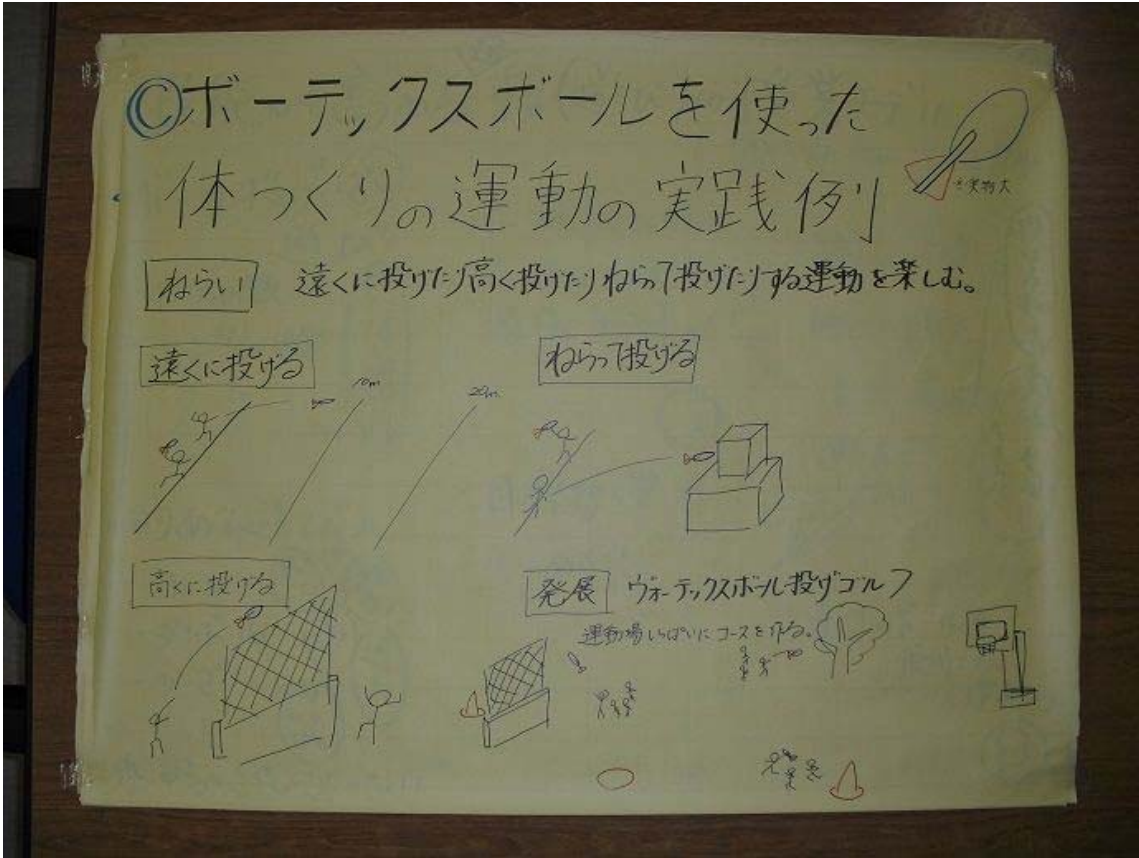 ©ボーテックスボールを使った
体つくりの運動の実践例
※実物大
ねらい 遠くに投げたり高く投げたりねらって投げたりする運動を楽しむ。
遠くに投げる
10m
20m
ねらって投げる
高くに投げる
発展 ヴォーテックスボール投げゴルフ
運動場いっぱいにコースを作る。